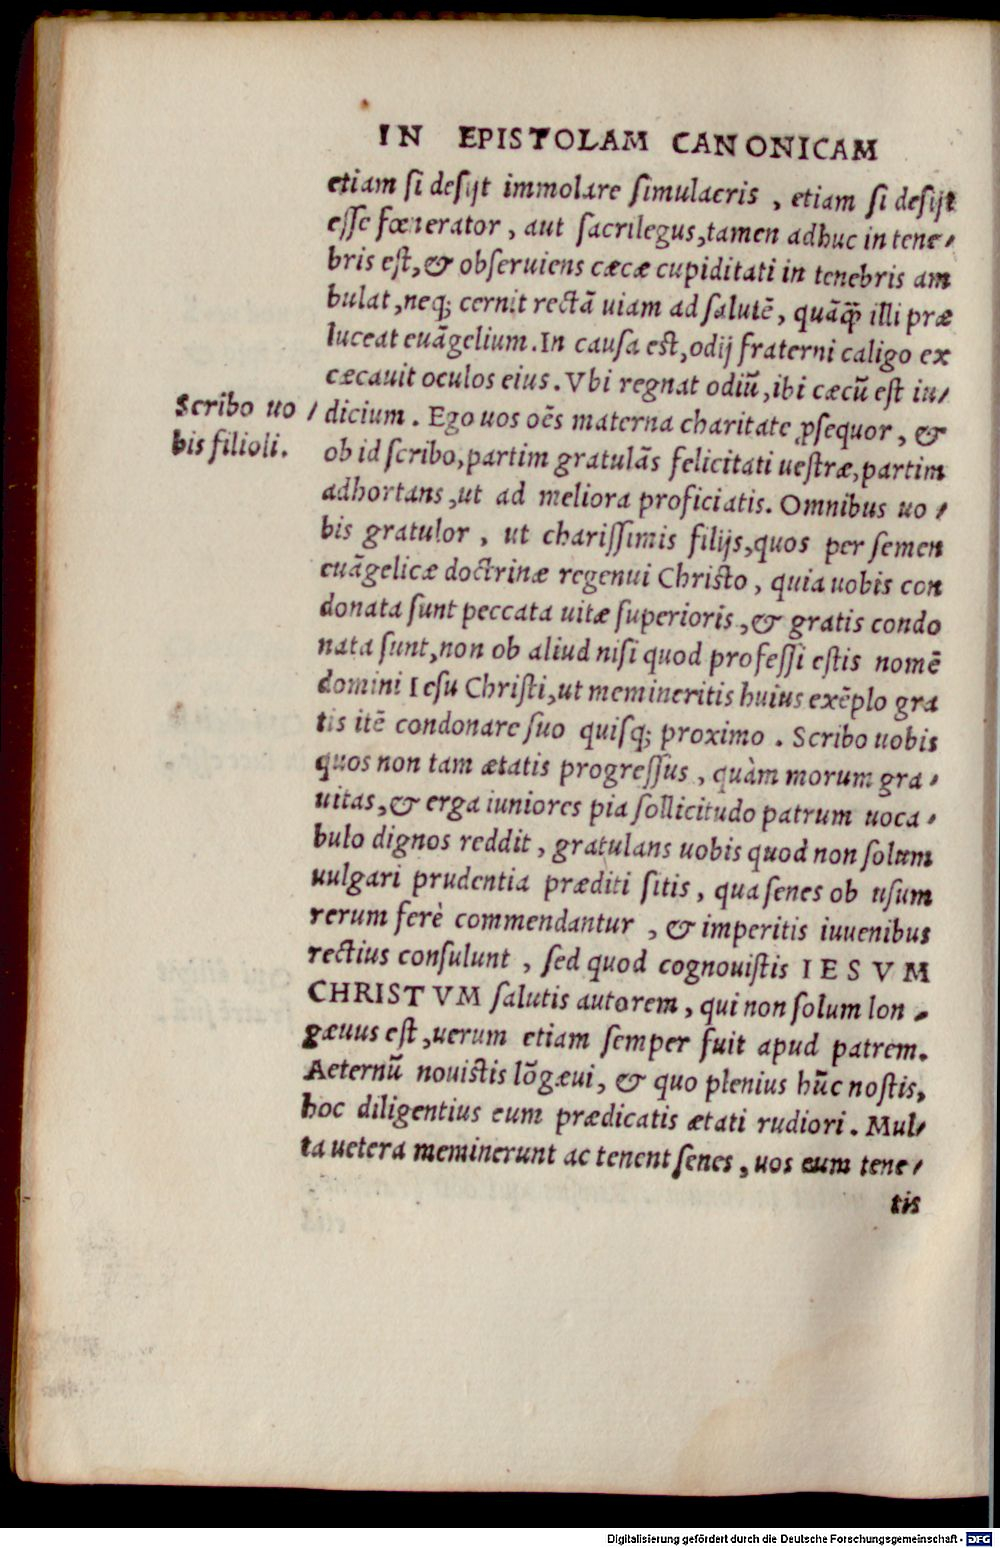 IN EPISTOLAM CANONICAM
etiam ſi deſijt immolare ſimulacris , etiam ſi deſijt
eſſe fœnerator , aut ſacrilegus,tamen adhuc in tene⸗
bris eſt,& obſeruiens cæcæ cupiditati in tenebris am
bulat,neq; cernit rectā uiam ad ſalutē, quāq̃ illi præ
luceat euāgelium. In cauſa eſt,odij fraterni caligo ex
cæcauit oculos eius. Vbi regnat odiū,ibi cæcū eſt iu⸗
Scribo uo⸗
bis filioli.
dicium . Ego uos oēs materna charitate ꝓſequor , &
ob id ſcribo,partim gratulās felicitati ueſtræ,partim
adhortans,ut ad meliora proficiatis. Omnibus uo⸗
bis gratulor , ut chariſſimis filijs,quos per ſemen
euāgelicæ doctrinæ regenui Chriſto, quia uobis con
donata ſunt peccata uitæ ſuperioris,& gratis condo
nata ſunt,non ob aliud niſi quod profeſſi eſtis nomē
domini Ieſu Chriſti,ut memineritis huius exēplo gra
tis itē condonare ſuo quiſq; proximo . Scribo uobis
quos non tam ætatis progreſſus , quàm morum gra⸗
uitas,& erga iuniores pia ſollicitudo patrum uoca⸗
bulo dignos reddit, gratulans uobis quod non ſolum
uulgari prudentia præditi ſitis, qua ſenes ob uſum
rerum ferè commendantur , & imperitis iuuenibus
rectius conſulunt , ſed quod cognouiſtis IESVM
CHRISTVM ſalutis autorem, qui non ſolum lon⸗
gæuus eſt,uerum etiam ſemper fuit apud patrem.
Aeternū nouiſtis lōgæui, & quo plenius hūc noſtis,
hoc diligentius eum prædicatis ætati rudiori. Mul⸗
ta uetera meminerunt ac tenent ſenes, uos eum tene⸗
tis
Digitalisierung gefördert durch die Deutsche Forschungsgemeinschaft - DFG